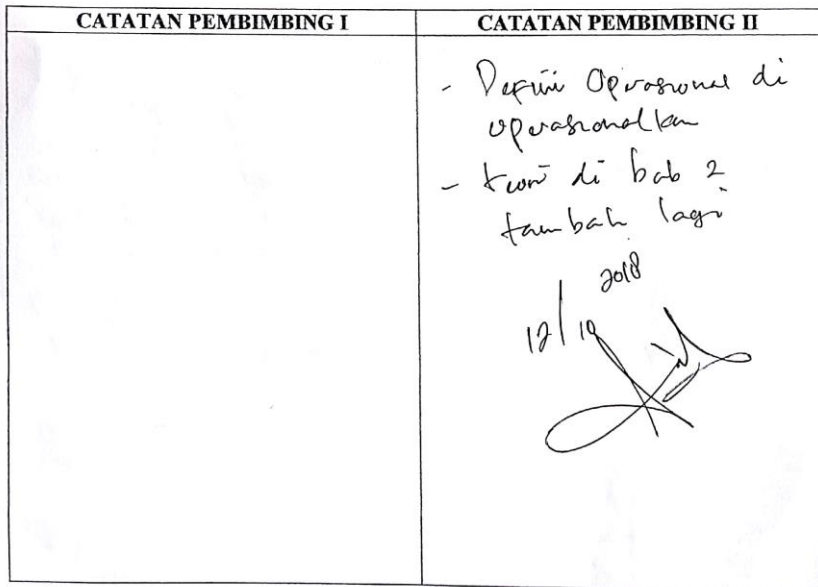 CATATAN PEMBIMBING I
CATATAN PEMBIMBING II
- Definisi Operasional di
operasionalkan
- teori di bab 2
tambah lagi
12/10 2018